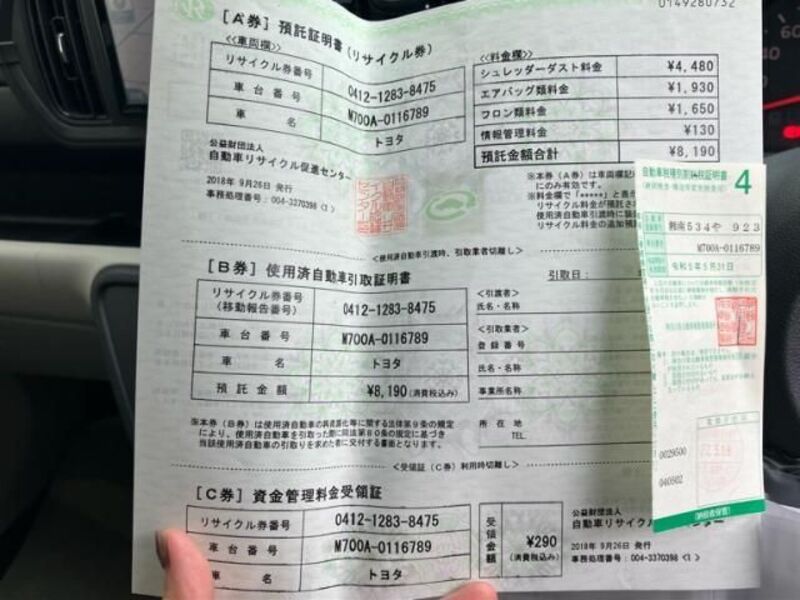 0149280732
[A券] 預託証明書(リサイクル券)
<<車両欄>>
リサイクル券番号 0412-1283-8475
車台番号 M700A-0116789
車名 トヨタ
公益財団法人
自動車リサイクル促進センター
2018年 9月26日 発行
事務処理番号:004-3370398 <1>
<<料金欄>>
シュレッダーダスト料金 ¥4,480
エアバッグ類料金 ¥1,930
フロン類料金 ¥1,650
情報管理料金 ¥130
預託金額合計 ¥8,190
※本券(A券)は車両欄記
にのみ有効です。
<使用済自動車引渡時、引取業者切離し>
[B券] 使用済自動車引取証明書
リサイクル券番号
(移動報告番号) 0412-1283-8475
車台番号 M700A-0116789
車名 トヨタ
預託金額 ¥8,190(消費税込み)
※本券(B券)は使用済自動車の再資源化等に関する法律第9条の規定
により、使用済自動車を引取った際に同法第80条の規定に基づき
当該使用済自動車の引取りを求めた者に交付する書面となります。
引取日:
<引渡者>
氏名・名称
<引取業者>
登録番号
氏名・名称
事業所名称
所在地
TEL
<受領証(C券)利用時切離し>
[C券] 資金管理料金受領証
リサイクル券番号 0412-1283-8475
車台番号 M700A-0116789
車名 トヨタ
受領金額 ¥290
(消費税込み)
公益財団法人
自動車リサイクル
2018年 9月26日 発行
事務処理番号:004-3370398 <1>
4
湘南534や 923
M700A-0116789
令和5年5月31日
0029500
040502
(納税者保管)
60